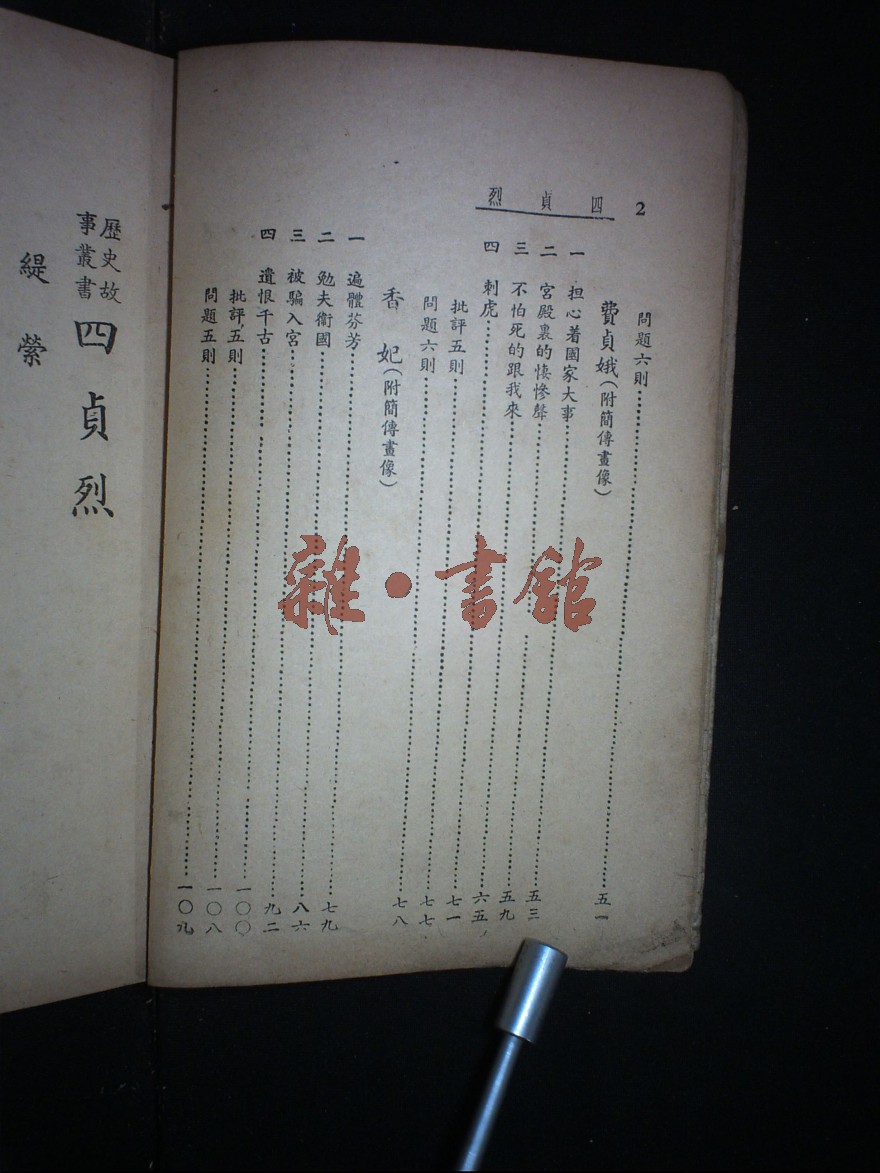 2
四貞烈
問題六則……五一
費貞娥(附簡傳畫像)
一 担心着國家大事……五三
二 宮殿裏的悽慘聲……五九
三 不怕死的跟我來……六五
四 刺虎……七一
批評五則……七七
問題六則……七八
香妃(附簡傳畫像)
一 遍體芬芳……七九
二 勉夫衛國……八六
三 被騙入宮……九二
四 遺恨千古……一〇〇
批評五則……一〇八
問題五則……一〇九
歷史故
事叢書
四貞烈
緹縈
雜・書館